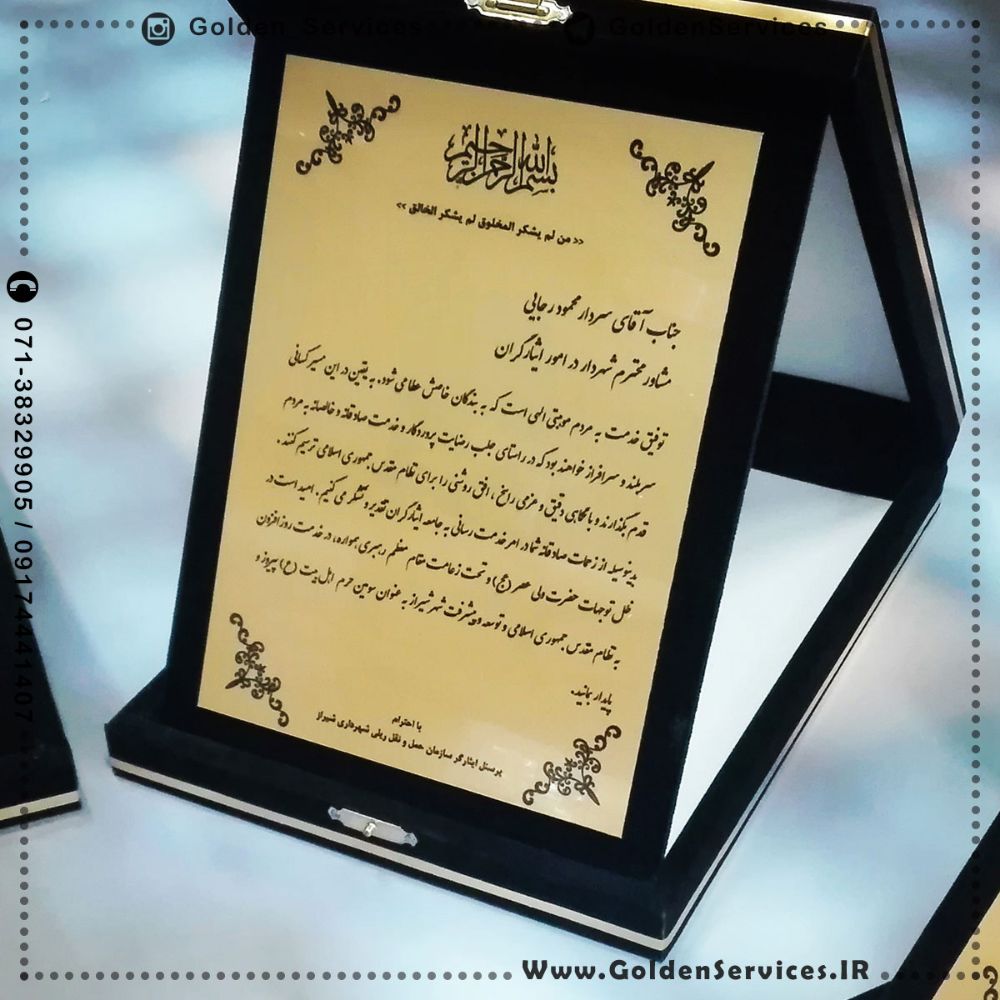 Golden Services
GoldenServices
بسم الله الرحمن الرحیم
<< من لم یشکر المخلوق لم یشکر الخالق >>
جناب آقای سردار محمود رجایی
مشاور محترم شهردار در امور ایثارگران
توفیق خدمت به مردم موهبتی الهی است که به بندگان خاصش عطا می شود. به یقین در این مسیر کسانی
سربلند و سرافراز خواهند بود که در راستای جلب رضایت پروردگار و خدمت صادقانه و خالصانه به مردم
قدم بگذارند و با نگاهی دقیق و عزمی راسخ ، افق روشنی را برای نظام مقدس جمهوری اسلامی ترسیم کنند .
بدینوسیله از زحمات صادقانه شما در امر خدمت رسانی به جامعه ایثارگران تقدیر و تشکر می کنیم . امید است در
ظل توجهات حضرت ولی عصر (عج) و تحت زعامت مقام معظم رهبری همواره، در خدمت روزافزون
به نظام مقدس جمهوری اسلامی و توسعه و پیشرفت شهر شیراز به عنوان سومین حرم اهل بیت (ع) پیروز و
پایدار بمانید.
با احترام
پرسنل ایثارگر سازمان حمل و نقل ریلی شهرداری شیراز
071-38329905 / 09174441407
Www.GoldenServices.IR